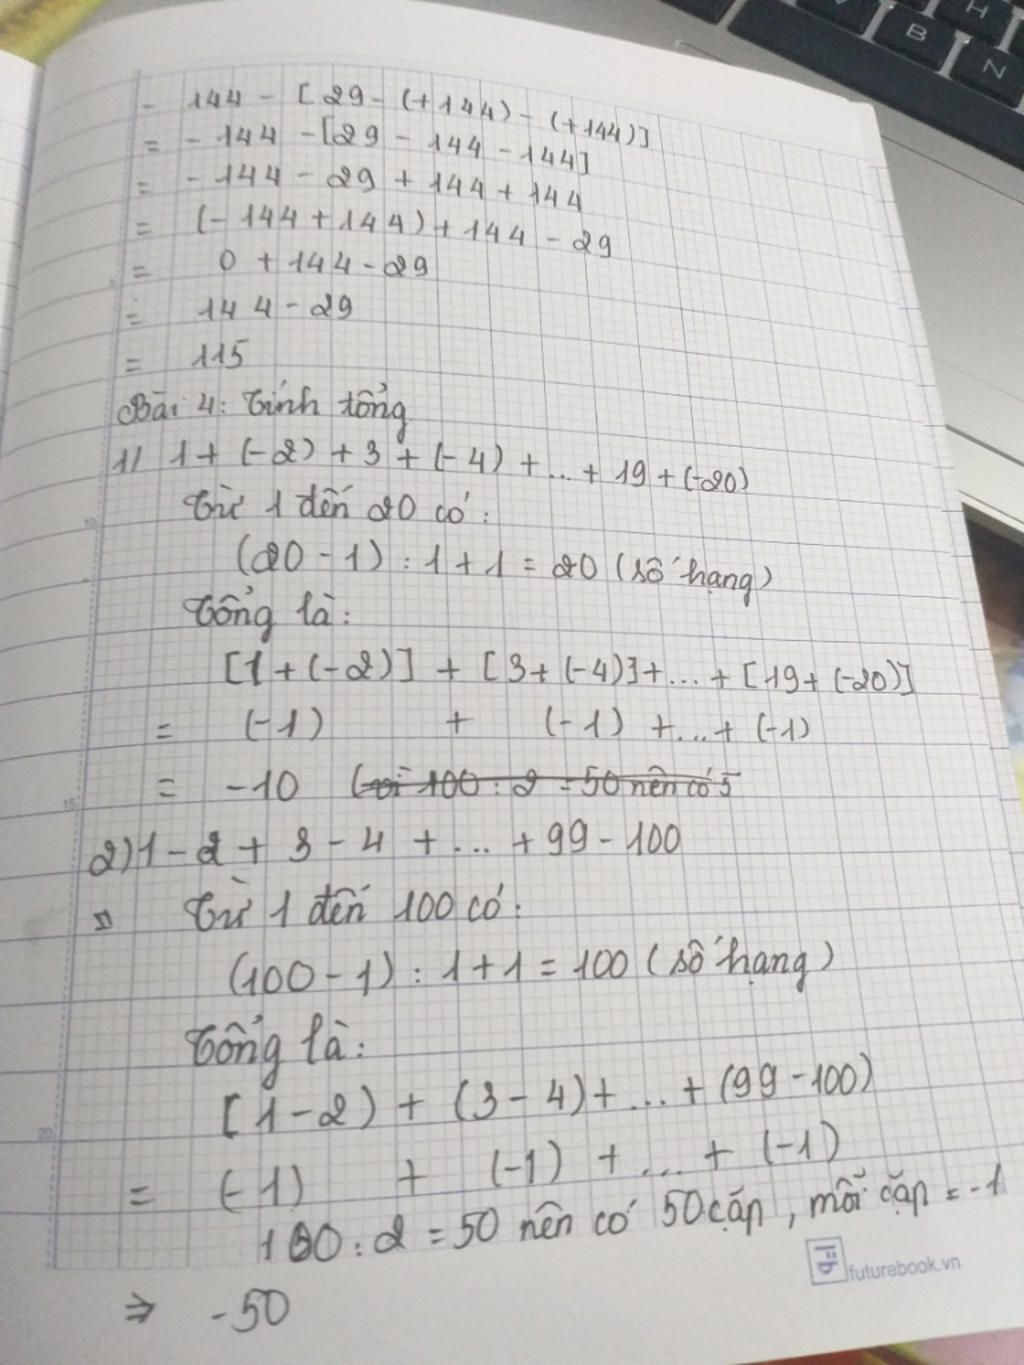 - 144 - [29 - (+144) - (+144)]
= - 144 - [29 - 144 - 144]
= - 144 - 29 + 144 + 144
= (- 144 + 144) + 144 - 29
= 0 + 144 - 29
= 144 - 29
= 115
Bài 4: Tính tổng
1) 1 + (-2) + 3 + (-4) + ... + 19 + (-20)
Từ 1 đến 20 có:
(20 - 1) : 1 + 1 = 20 (số hạng)
Tổng là:
[1 + (-2)] + [3 + (-4)] + ... + [19 + (-20)]
= (-1) + (-1) + ... + (-1)
= -10 (vì 100 : 2 = 50 nên có 5
2) 1 - 2 + 3 - 4 + ... + 99 - 100
Từ 1 đến 100 có:
(100 - 1) : 1 + 1 = 100 (số hạng)
Tổng là:
[1 - 2) + (3 - 4) + ... + (99 - 100)
= (-1) + (-1) + ... + (-1)
100 : 2 = 50 nên có 50 cặp, mỗi cặp = -1
⇒ -50
futurebook.vn
10
15
20
H
B
N